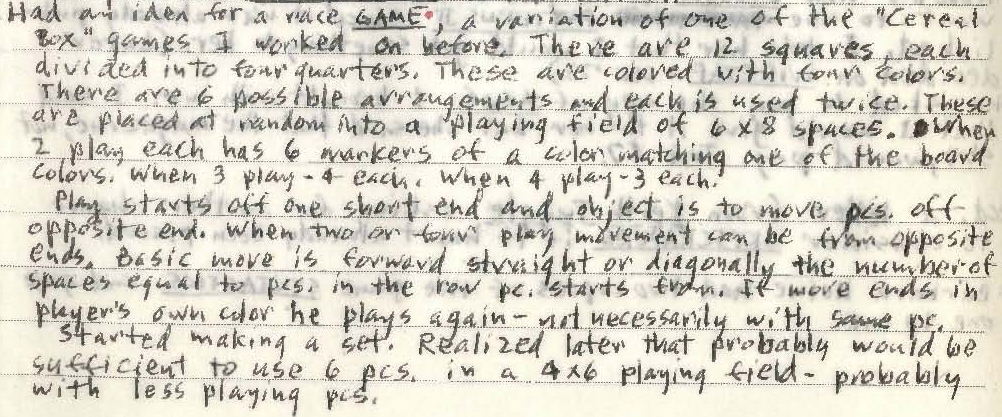 Had an idea for a race GAME, a variation of one of the "Cereal
Box" games I worked on before. There are 12 squares, each
divided into four quarters. These are colored with four colors.
There are 6 possible arrangements and each is used twice. These
are placed at random into a playing field of 6 x 8 spaces. When
2 play each has 6 markers of a color matching one of the board
colors. When 3 play - 4 each. When 4 play - 3 each.
Play starts off one short end and object is to move pcs. off
opposite end. When two or four play movement can be from opposite
ends. Basic move is forward straight or diagonally the number of
spaces equal to pcs. in the row pc. starts from. If move ends in
player's own color he plays again - not necessarily with same pc.
Started making a set. Realized later that probably would be
sufficient to use 6 pcs. in a 4x6 playing field - probably
with less playing pcs.